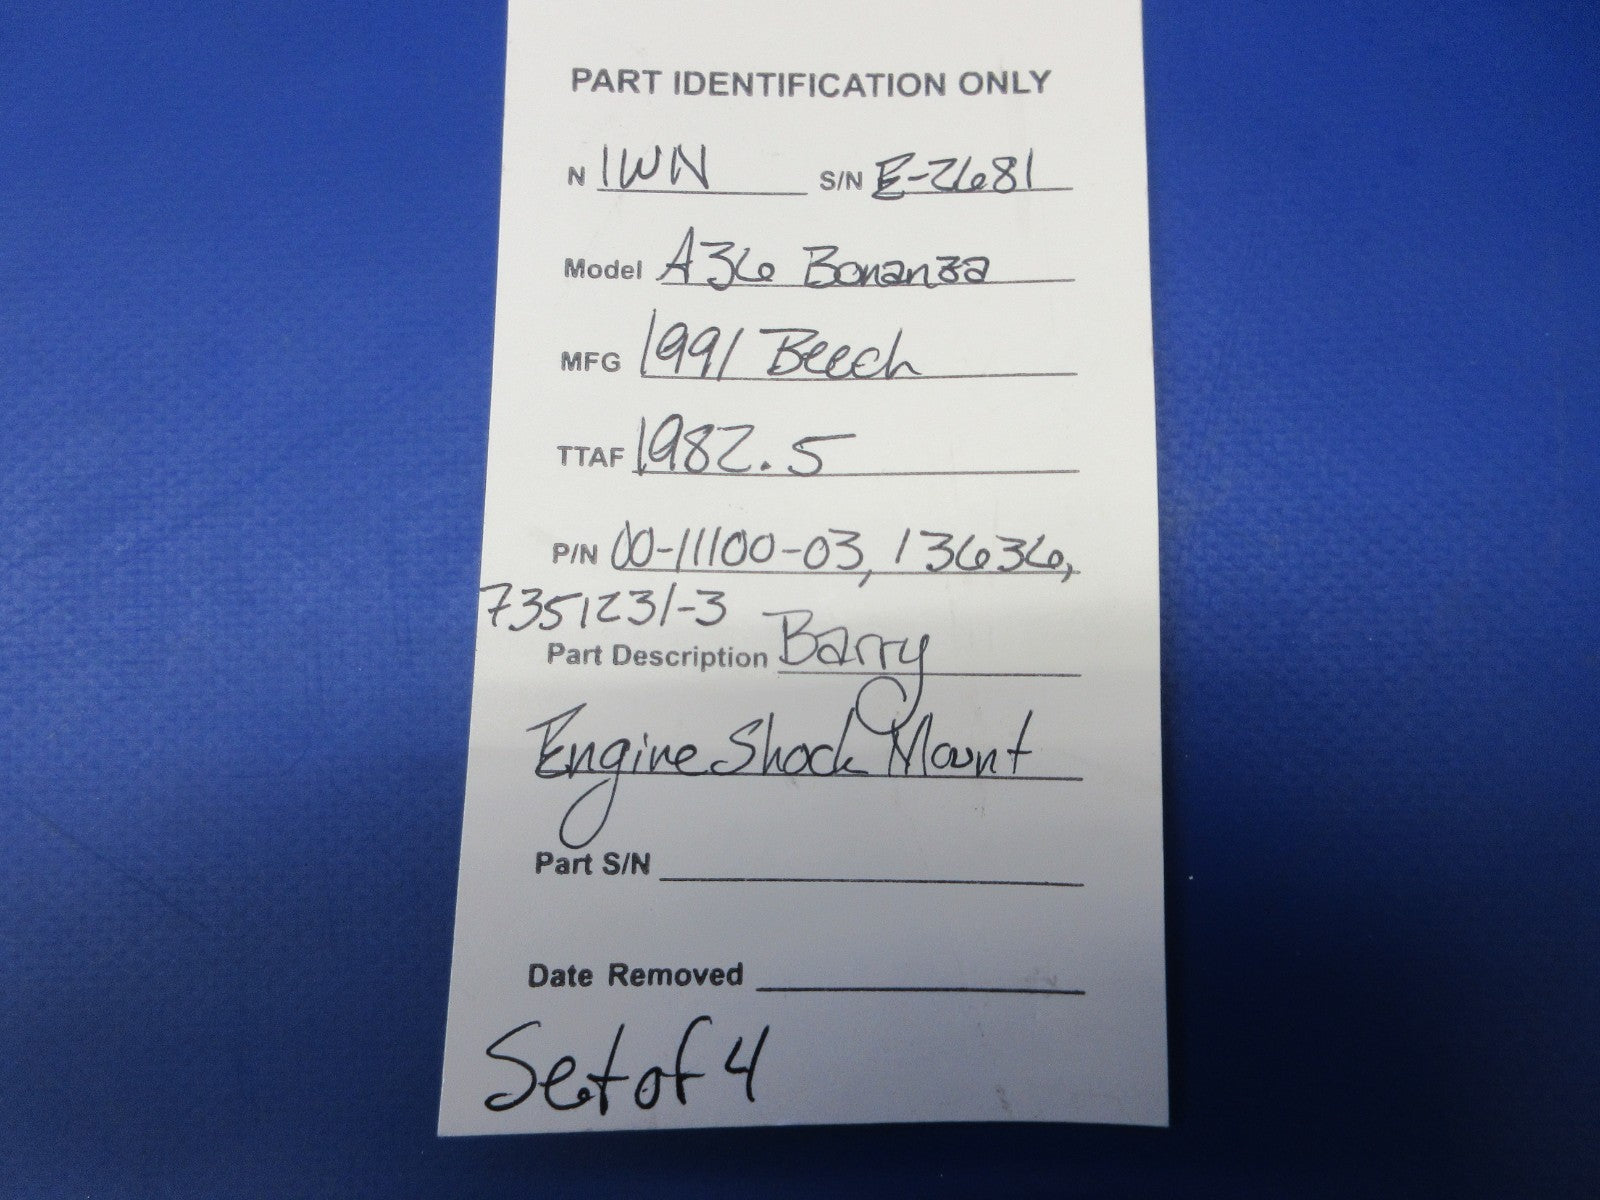 PART IDENTIFICATION ONLY
N 1WN S/N E-2681
Model A36 Bonanza
MFG 1991 Beech
TTAF 1982.5
P/N 00-11100-03, 13636,
7351231-3
Part Description Barry
Engine Shock Mount
Part S/N
Date Removed
Set of 4